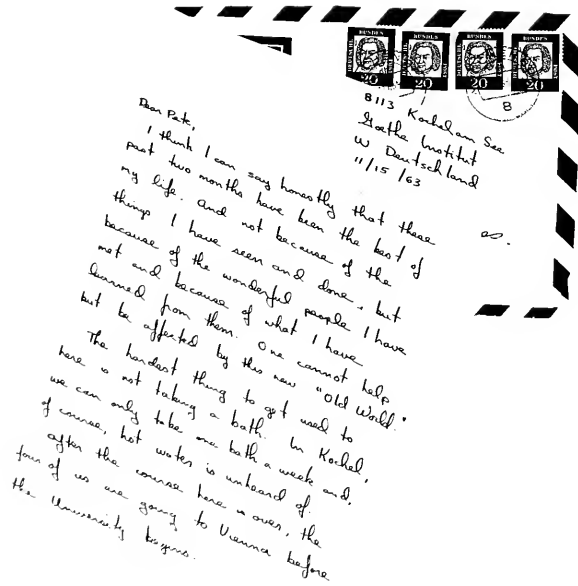 DEUTSCHE BUNDESPOST 20
DEUTSCHE BUNDESPOST 20
DEUTSCHE BUNDESPOST 20
DEUTSCHE BUNDESPOST 20
8
8113 Kochel am See
Goethe Institut
W Deutschland
11/15/63
es.
Dear Pete,
I think I can say honestly that these
past two months have been the best of
my life. And not because of the
things I have seen and done, but
because of the wonderful people I have
met and because of what I have
learned from them. One cannot help
but be affected by this new "Old World."
The hardest thing to get used to
here is not taking a bath. In Kochel,
we can only take one bath a week and,
of course, hot water is unheard of.
After the course here is over, the
four of us are going to Vienna before
the University begins.